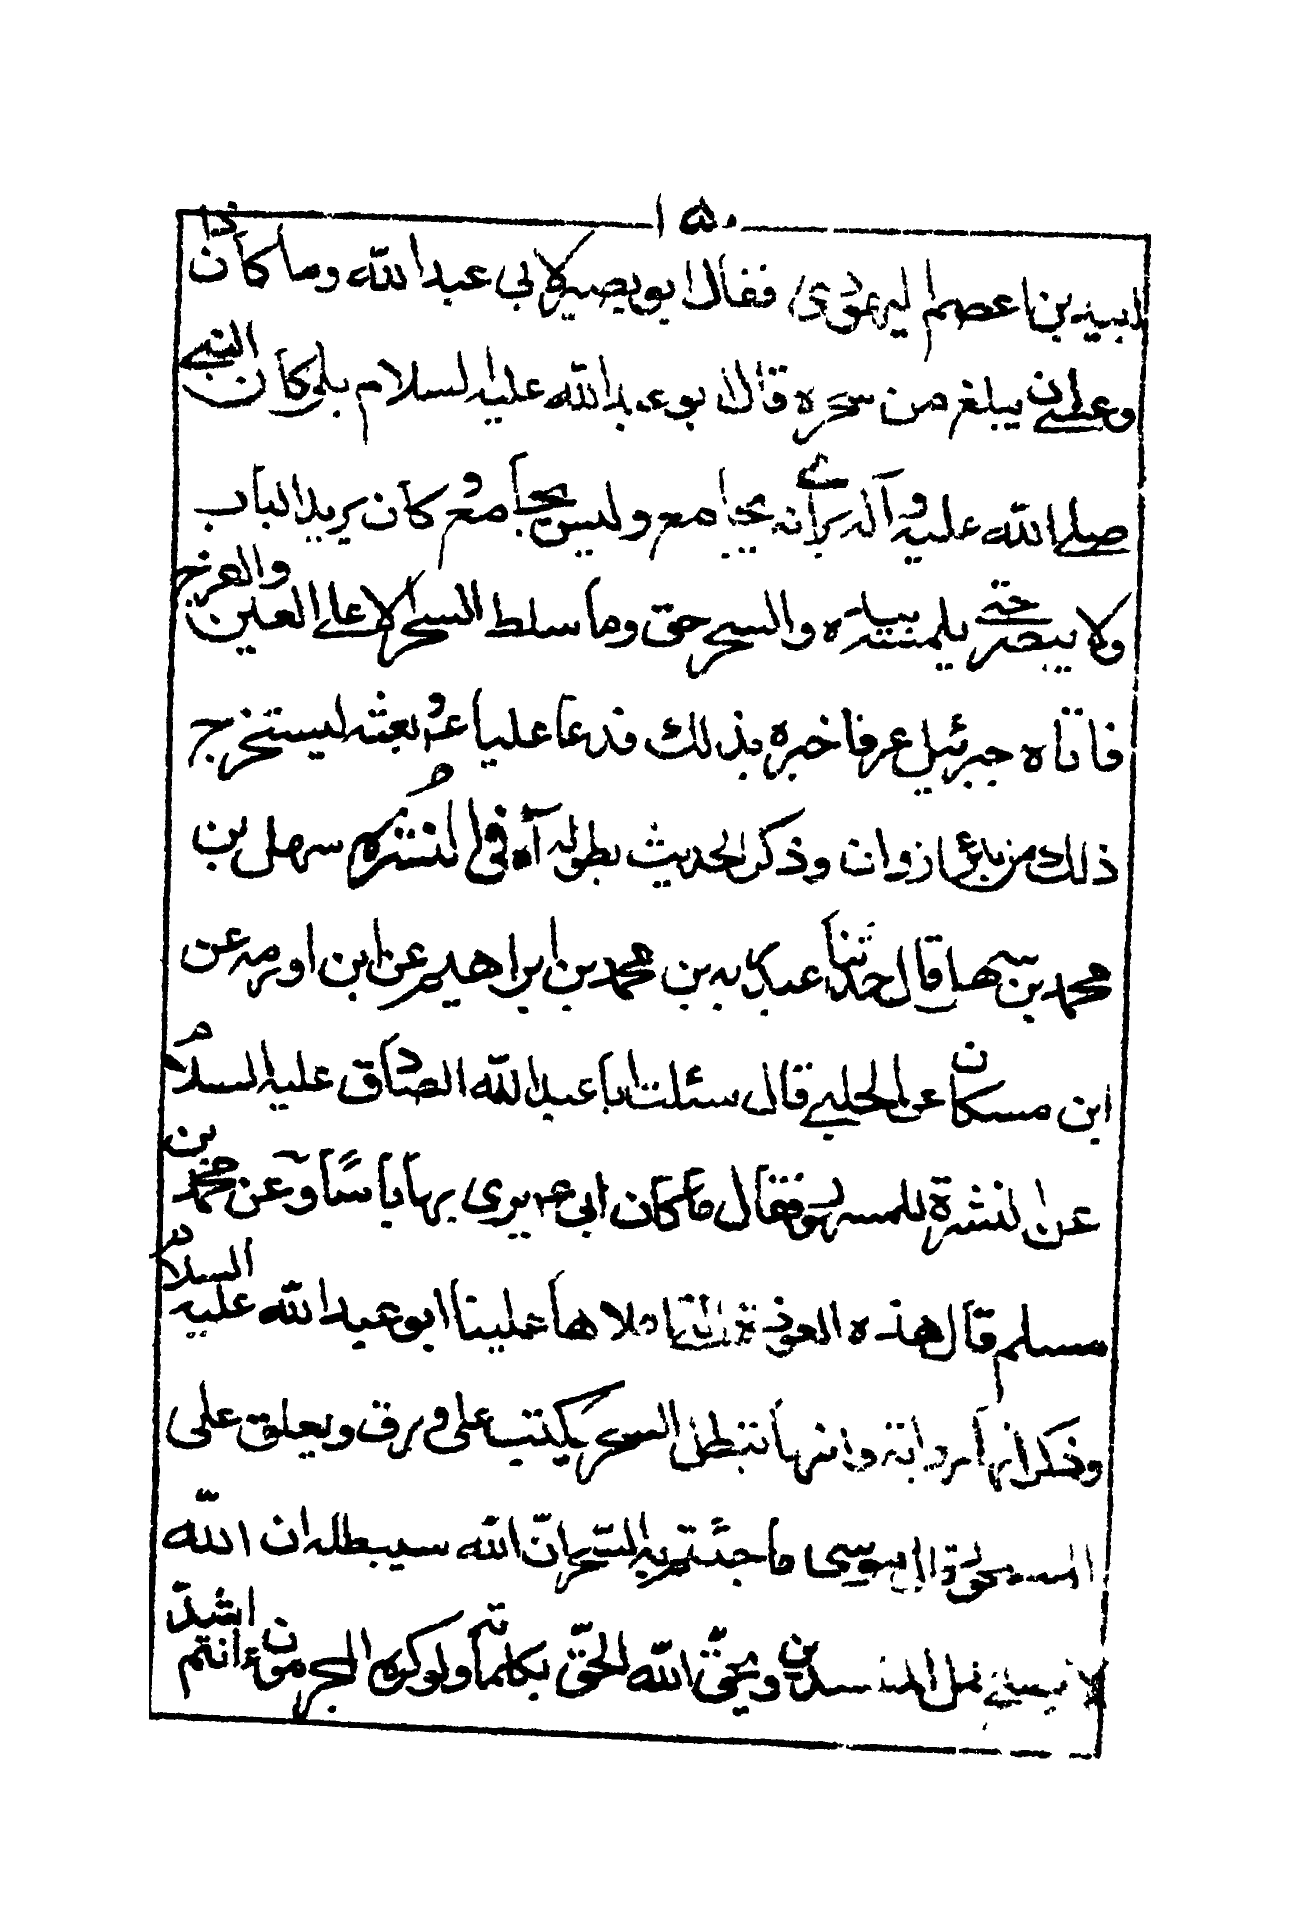 ١٥٠
لبيد بن اعصم اليهودى فقال ابو بصير لابي عبد الله وما كان ذا
وعسى ان يبلغ من سحره قال ابو عبد الله عليه السلام بلى كان النبي
صلى الله عليه وآله يرى انه يجامع وليس يجامع وكان يريد الباب
ولا يبصره حتى يلمسه بيده والسحر حق وما سلط السحر الا على العين والفرج
فاتاه جبرئيل ع فاخبره بذلك فدعا عليا ع وبعثه ليستخرج
ذلك من بئر ازوان وذكر الحديث بطوله آه في النشره م سهل بن
محمد بن سهل قال حدثنا عبد ربه بن محمد بن ابراهيم عن ابن اورمه عن
ابن مسكان عن الحلبي قال سئلت ابا عبد الله الصادق عليه السلام
عن النشرة للمسحور فقال ما كان ابي ع يرى بها باسًا وعن محمد بن
مسلم قال هذه العوذة التي املاها علينا ابو عبد الله عليه السلام
وذكر انها وراثة وانها تبطل السحر يكتب على ورق ويعلق على
المسحور قال موسى ما جئتم به السّحر انّ الله سيبطله ان الله
لا يصلح عمل المفسدين ويحقّ الله الحقّ بكلماته ولوكره المجرمون ءانتم اشدّ